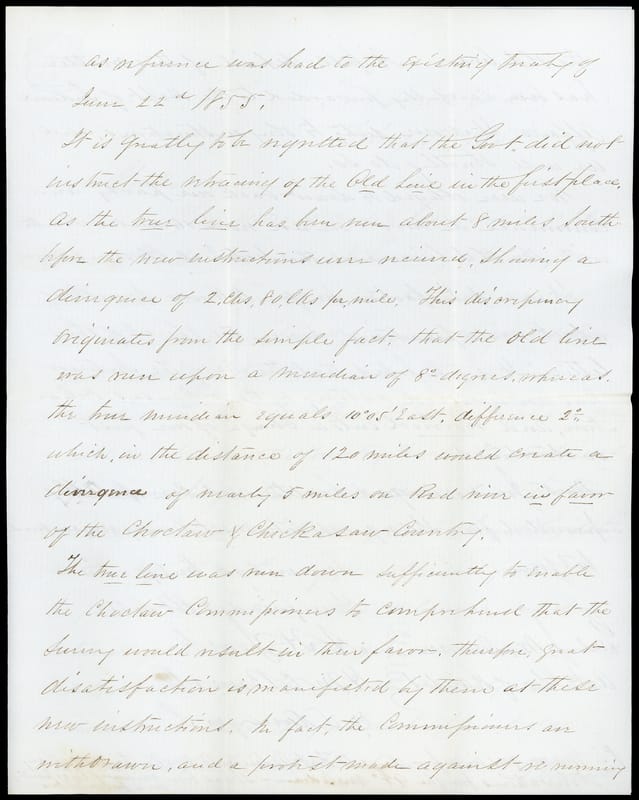 as reference was had to the existing treaty of
June 22d 1855.
It is greatly to be regretted that the Govt. did not
instruct the retracing of the Old Line in the first place,
as the true line has been run about 8 miles South
before the new instructions were received, showing a
divergence of 2. Chs. 80. lks per mile. This discrepency
originates from the simple fact, that the old line
was run upon a meridian of 8° degrees, whereas.
the true meridian equals 10°05' East, difference 2°
which, in the distance of 120 miles would create a
divergence of nearly 5 miles on Red river in favor
of the Choctaw & Chickasaw Country.
The true line was run down sufficiently to enable
the Choctaw Commissioners to comprehend that the
Survey would result in their favor. therefore, great
disatisfaction is manifested by them at these
new instructions. In fact, the Commissioners are
withdrawn, and a protest made against re running